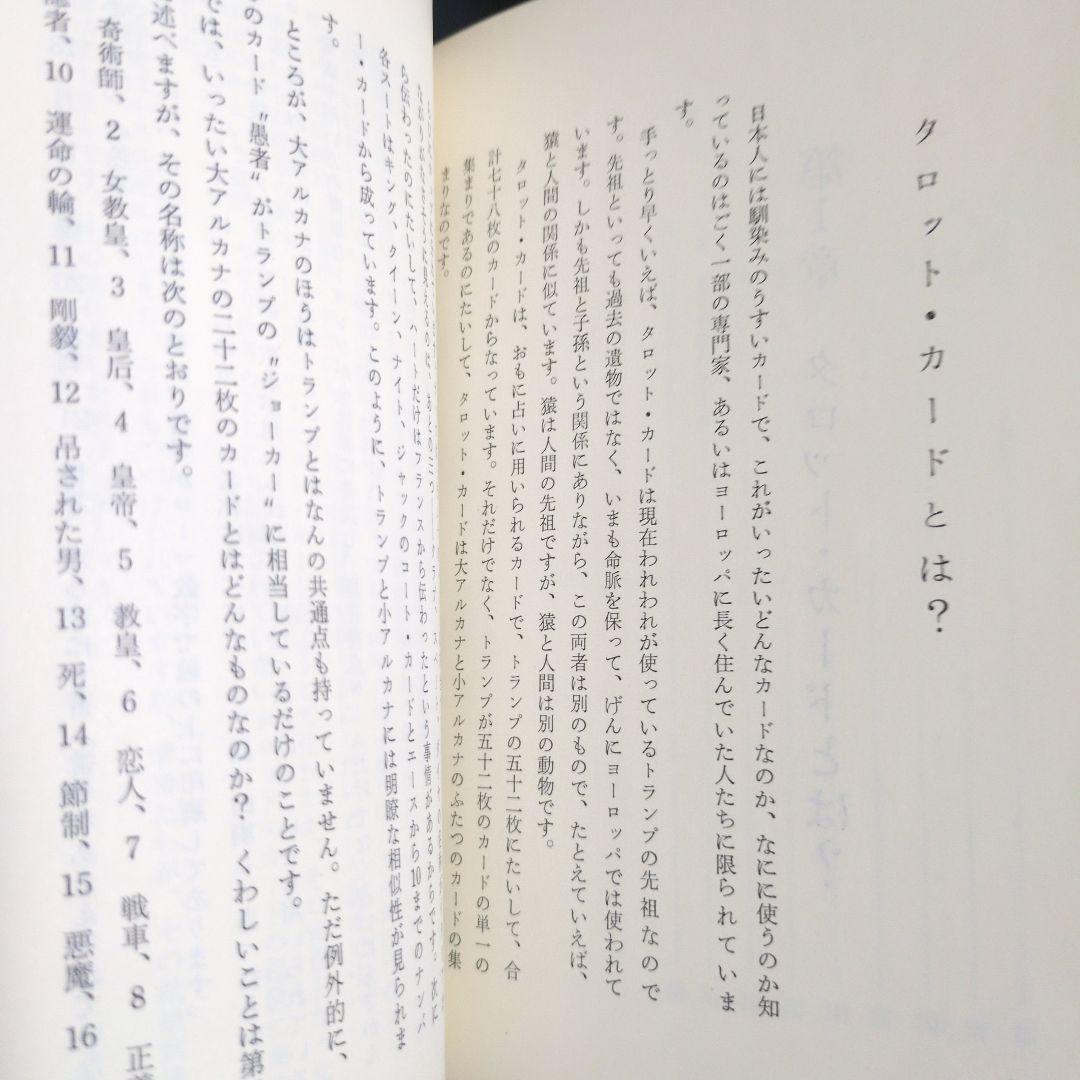 タロット・カードとは?
日本人には馴染みのうすいカードで、これがいったいどんなカードなのか、なにに使うのか知
っているのはごく一部の専門家、あるいはヨーロッパに長く住んでいた人たちに限られていま
す。
手っとり早くいえば、タロット・カードは現在われわれが使っているトランプの先祖なので
す。先祖といっても過去の遺物ではなく、いまも命脈を保って、げんにヨーロッパでは使われて
います。しかも先祖と子孫という関係にありながら、この両者は別のもので、たとえていえば、
猿と人間の関係に似ています。猿は人間の先祖ですが、猿と人間は別の動物です。
タロット・カードは、おもに占いに用いられるカードで、トランプの五十二枚にたいして、合
計七十八枚のカードからなっています。それだけでなく、トランプが五十二枚のカードの単一の
集まりであるのにたいして、タロット・カードは大アルカナと小アルカナのふたつのカードの集
まりなのです。
ら伝わったのにたいして、ハートだけはフランスから伝わったという事情があるからです。次に
各スートはキング、クイーン、ナイト、ジャックのコート・カードとエースから10までのナンバ
ー・カードから成っています。このように、トランプと小アルカナには明瞭な相似性が見られま
す。
ところが、大アルカナのほうはトランプとはなんの共通点も持っていません。ただ例外的に、
のカード〝愚者〟がトランプの〝ジョーカー〟に相当しているだけのことです。
では、いったい大アルカナの二十二枚のカードとはどんなものなのか? くわしいことは第
述べますが、その名称は次のとおりです。
奇術師、2 女教皇、3 皇后、4 皇帝、5 教皇、6 恋人、7 戦車、8 正
者、10 運命の輪、11 剛毅、12 吊された男、13 死、14 節制、15 悪魔、16